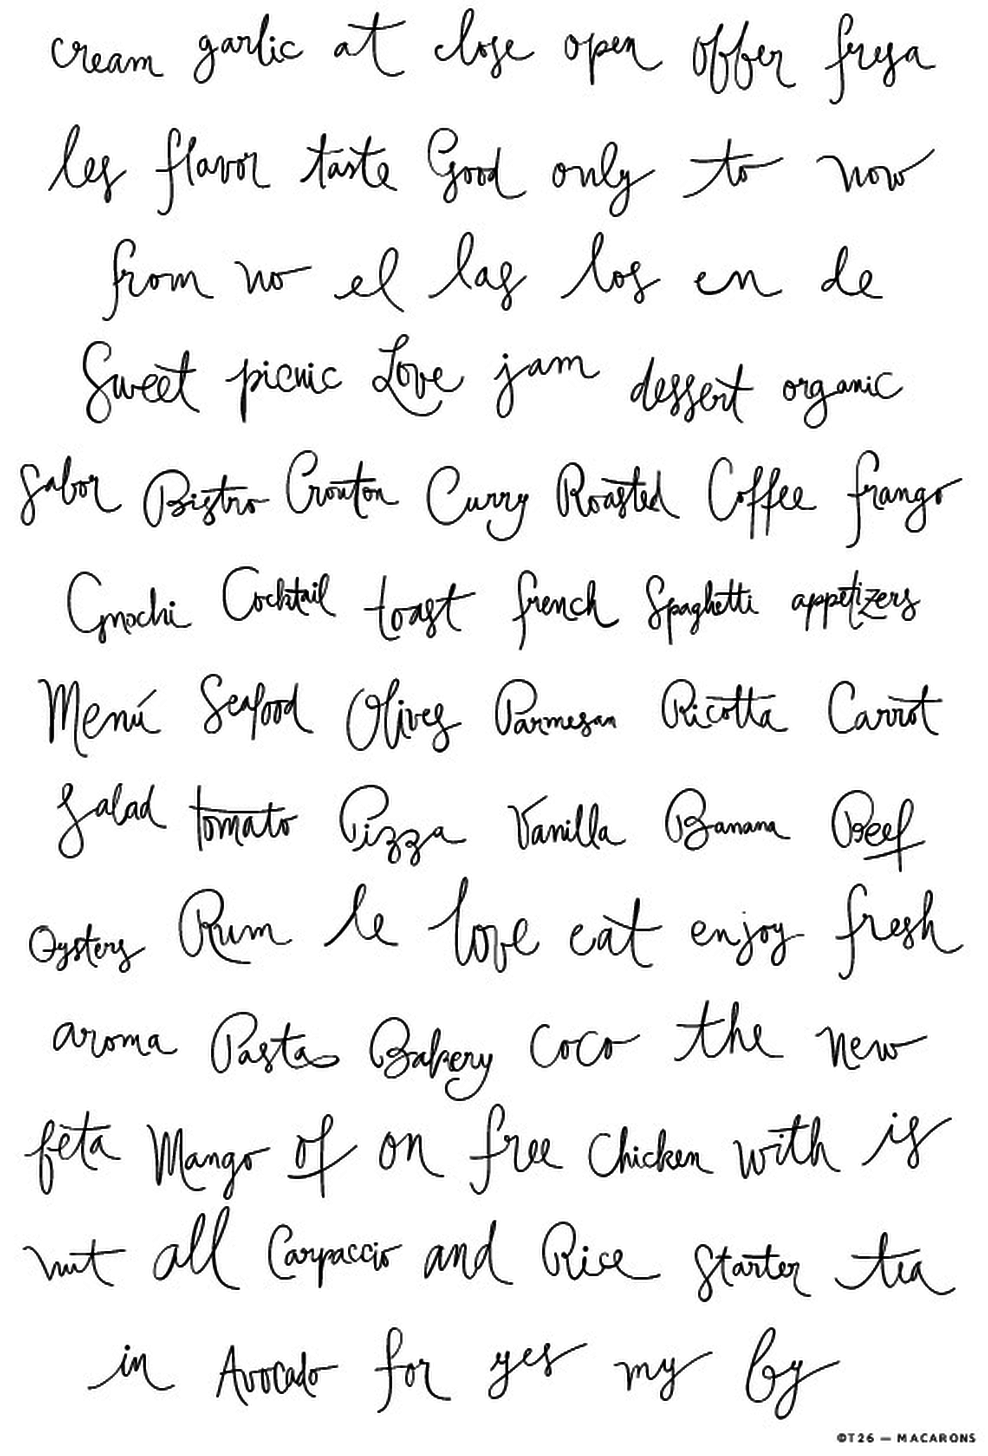 cream garlic at close open offer fresa
les flavor taste Good only to now
from no el las los en de
Sweet picnic Love jam dessert organic
Sabor Bistro Crouton Curry Roasted Coffee frango
Gnochi Cocktail toast french Spaghetti appetizers
Menú Seafood Olives Parmesan Ricotta Carrot
Salad tomato Pizza Vanilla Banana Beef
Oysters Rum le love eat enjoy fresh
aroma Pasta Bakery coco the new
feta Mango of on free Chicken with is
nut all Carpaccio and Rice Starter tea
in Avocado for yes my by
©T26 — MACARONS